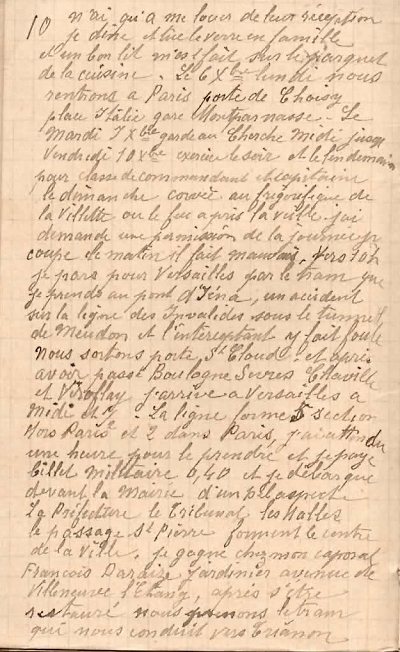 10 n'ai qu'a me louer de leur réception
je dine et tue le verre en famille
et un bon lit m'est fait sur le parquet
de la cuisine. Le 6 Xbre lundi nous
rentrons a Paris porte de Choisy
place Italie gare Montparnasse. Le
Mardi 7 Xbre garde au Cherche Midi jusq
Vendredi 10 Xbre exercice le soir et le lendemain
pour classe de commandant et capitaine
le dimanche corvée au frigorifique de
la Villette ou le feu a pris la veille. j'ai
demande une permission de la journée je
coupe le matin il fait mauvais. Vers 10h
je pars pour Versailles par le tram que
je prends au pont d'Iéna, un accident
sur la ligne des Invalides sous le tunnel
de Meudon et l'interceptant y fait foule
Nous sortons porte St Cloud et après
avoir passé Boulogne Sevres Chaville
et Viroflay j'arrive a Versailles a
Midi et 1/2. La ligne forme 5 section
Hors Paris et 2 dans Paris, j'ai attendu
une heure pour le prendre et je paye
billet militaire 0,40 et je débarque
devant la Mairie d'un bel aspect
La Préfecture le Tribunal les Halles
le passage St Pierre forment le centre
de la Ville. je gagne chez mon caporal
François jardinier avenue de
Villeneuve l'Etang, après s'être
restauré nous prenons le tram
qui nous conduit vers Trianon